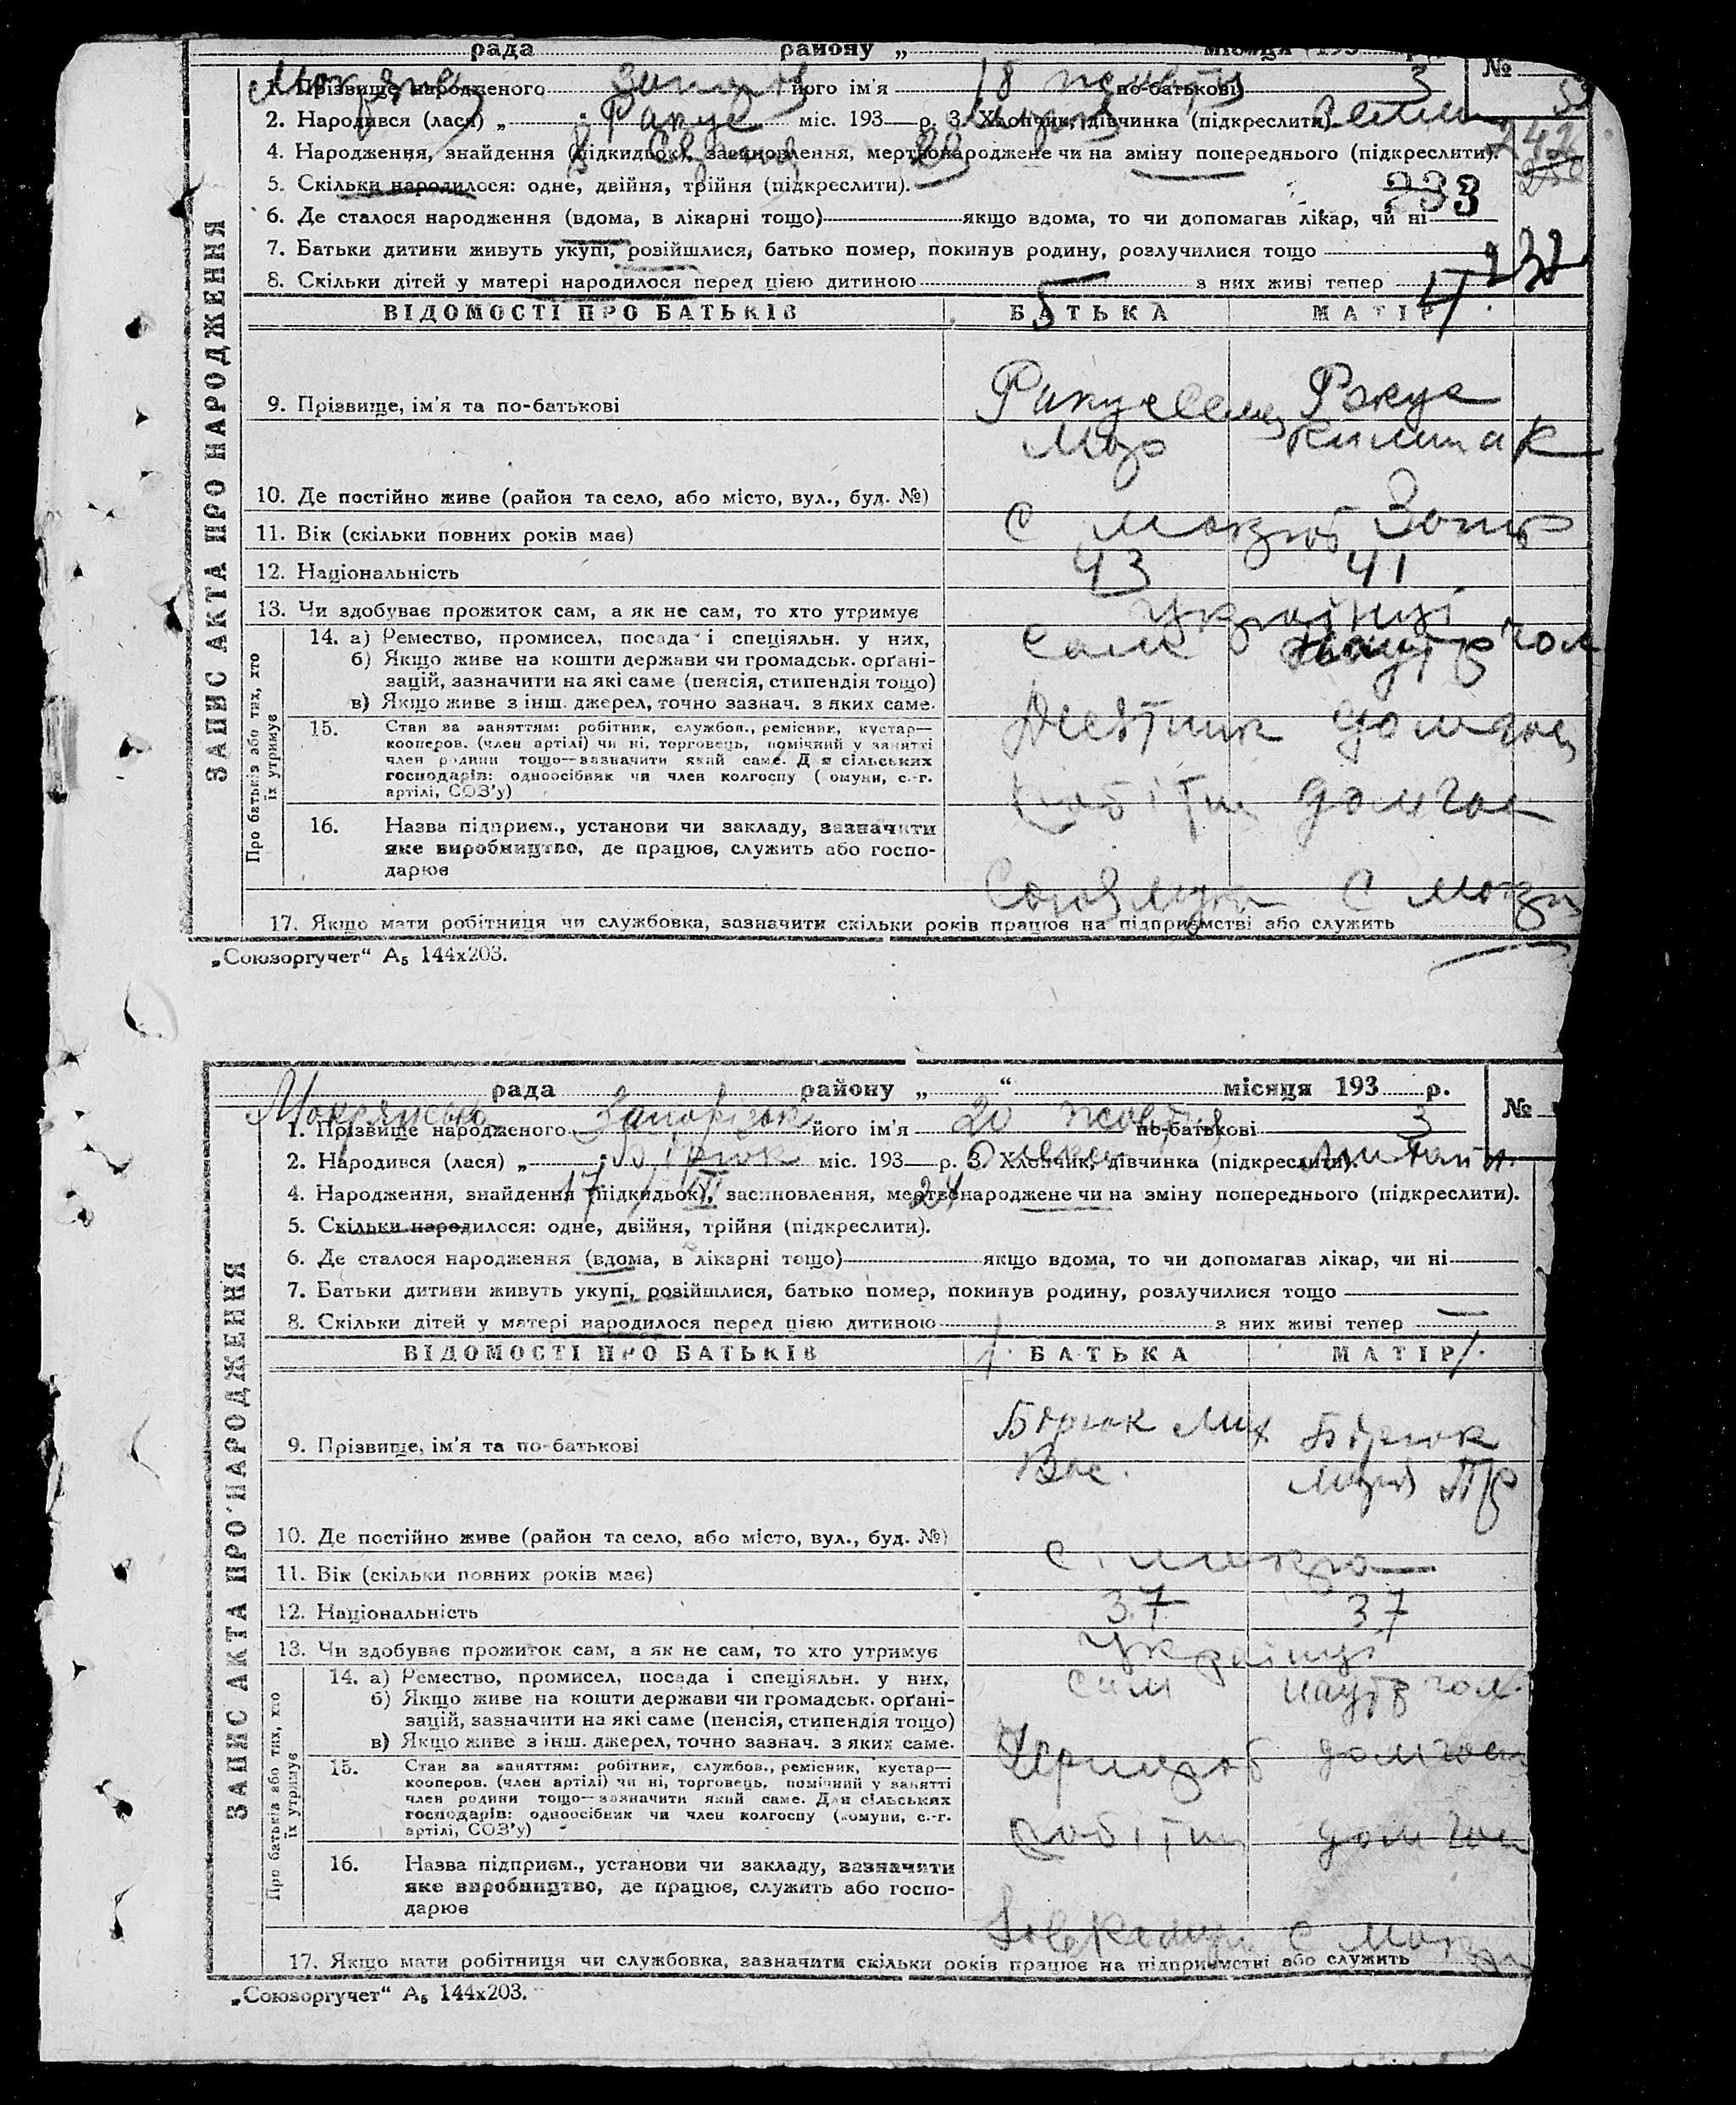 рада району „ місяця 193 р. №
Мокрян Запоріз 18 жовтня 3
1. Прізвище народженого його ім'я по-батькові 53
Ракус Марія Семен
2. Народився (лася) „ “ міс. 193 р. 3. Хлопчик, дівчинка (підкреслити) 242
4. Народження, знайдення (підкидьок), засиновлення, мертвонароджене чи на зміну попереднього (підкреслити).
5. Скільки народилося: одне, двійня, трійня (підкреслити). 233
6. Де сталося народження (вдома, в лікарні тощо) якщо вдома, то чи допомагав лікар, чи ні
7. Батьки дитини живуть укупі, розійшлися, батько помер, покинув родину, розлучилися тощо 232
8. Скільки дітей у матері народилося перед цією дитиною 5 з них живі тепер 4
ВІДОМОСТІ ПРО БАТЬКІВ БАТЬКА МАТІР
ЗАПИС АКТА ПРО НАРОДЖЕННЯ
Ракус Семен Ракус
9. Прізвище, ім'я та по-батькові
10. Де постійно живе (район та село, або місто, вул., буд. №)
С Мокрій Запор
11. Вік (скільки повних років має)
43 41
12. Національність
Українці
13. Чи здобуває прожиток сам, а як не сам, то хто утримує
Сам на утр чол
Про батьків або тих, хто їх утримує
14. а) Ремество, промисел, посада і спеціяльн. у них,
б) Якщо живе на кошти держави чи громадськ. орґані-
зацій, зазначити на які саме (пенсія, стипендія тощо)
в) Якщо живе з інш. джерел, точно зазнач. з яких саме.
домгосп
15. Стан за заняттям: робітник, службов., ремісник, кустар—
кооперов. (член артілі) чи ні, торговець, помічний у занятті
член родини тощо—зазначити який саме. Для сільських
господарів: одноосібняк чи член колгоспу (комуни, с.-г.
артілі, СОЗ'у)
Робітн домгос
16. Назва підприєм., установи чи закладу, зазначити
яке виробництво, де працює, служить або госпо-
дарює
С Мокр
17. Якщо мати робітниця чи службовка, зазначити скільки років працює на підприємстві або служить
„Союзоргучет“ А₅ 144х203.
рада району „ “ місяця 193 р. №
Мокрянська Запорізьк 20 жовтня 3
1. Прізвище народженого його ім'я по-батькові
Бірюк Олекса Михайл
2. Народився (лася) „ “ міс. 193 р. 3. Хлопчик, дівчинка (підкреслити).
17 24
4. Народження, знайдення (підкидьок), засиновлення, мертвонароджене чи на зміну попереднього (підкреслити).
5. Скільки народилося: одне, двійня, трійня (підкреслити).
6. Де сталося народження (вдома, в лікарні тощо) якщо вдома, то чи допомагав лікар, чи ні
7. Батьки дитини живуть укупі, розійшлися, батько помер, покинув родину, розлучилися тощо
8. Скільки дітей у матері народилося перед цією дитиною з них живі тепер
1 1
ВІДОМОСТІ ПРО БАТЬКІВ БАТЬКА МАТІР
ЗАПИС АКТА ПРО НАРОДЖЕННЯ
Бірюк Мих Бірюк
9. Прізвище, ім'я та по-батькові
Вас. Марія Пр
10. Де постійно живе (район та село, або місто, вул., буд. №)
С. Мокра
11. Вік (скільки повних років має)
37 37
12. Національність
Українці
13. Чи здобуває прожиток сам, а як не сам, то хто утримує
сам на утр чол.
Про батьків або тих, хто їх утримує
14. а) Ремество, промисел, посада і спеціяльн. у них,
б) Якщо живе на кошти держави чи громадськ. орґані-
зацій, зазначити на які саме (пенсія, стипендія тощо)
в) Якщо живе з інш. джерел, точно зазнач. з яких саме.
домгосп
15. Стан за заняттям: робітник, службов., ремісник, кустар—
кооперов. (член артілі) чи ні, торговець, помічний у занятті
член родини тощо—зазначити який саме. Для сільських
господарів: одноосібник чи член колгоспу (комуни, с.-г.
артілі, СОЗ'у)
Робітн домгосп
16. Назва підприєм., установи чи закладу, зазначити
яке виробництво, де працює, служить або госпо-
дарює
С Мокр
17. Якщо мати робітниця чи службовка, зазначити скільки років працює на підприємстві або служить
„Союзоргучет“ А₅ 144х203.